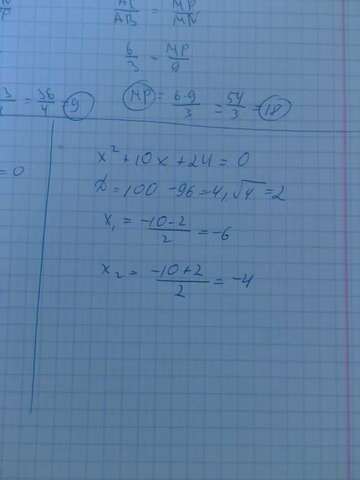 AB = MN
6/3 = MP/9
3 = 36/4 = 9
MP = 6·9/3 = 54/3 = 18
x² + 10x + 24 = 0
= 0
D = 100 - 96 = 4, √4 = 2
x₁ = -10-2/2 = -6
x₂ = -10+2/2 = -4